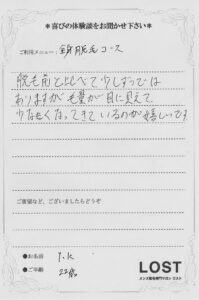 ＊喜びの体験談をお聞かせ下さい＊
ご利用メニュー：全身脱毛コース
脱毛前と比べて少しずつでは
ありますが毛量が目に見えて
少なくなってきているのが嬉しいです
ご要望など、ございましたらどうぞ
●お名前 T.K
●ご年齢 22歳
LOST
メンズ脱毛専門サロン ロスト